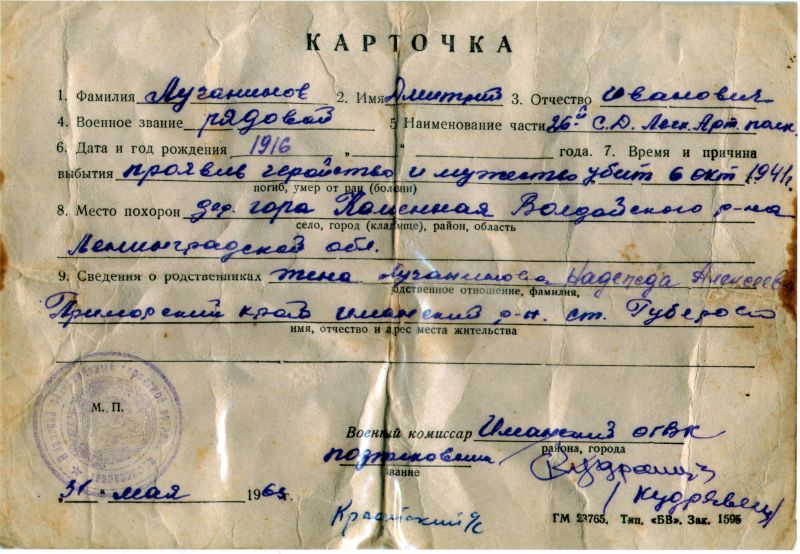 КАРТОЧКА
1. Фамилия Лучанинов 2. Имя Дмитрий 3. Отчество Иванович
4. Военное звание рядовой 5 Наименование части 26й С.Д. Легк. Арт. полк
6. Дата и год рождения 1916 „ „ года. 7. Время и причина
выбытия проявив геройство и мужество убит 6 окт 1941г.
погиб, умер от ран (болезни)
8. Место похорон дер. гора Каменная Валдайского р-на
село, город (кладбище), район, область
Ленинградской обл.
9. Сведения о родственниках жена Лучанинова Надежда Алексеев
одственное отношение, фамилия,
Приморский край Иманский р-н. ст. Губерово
имя, отчество и адрес места жительства
М. П.
Военный комиссар Иманский ОГВК
района, города
подполковник
звание
/Кудрявец/
„31" мая 1965г.
ГМ 23765. Тип. «БВ». Зак. 1595